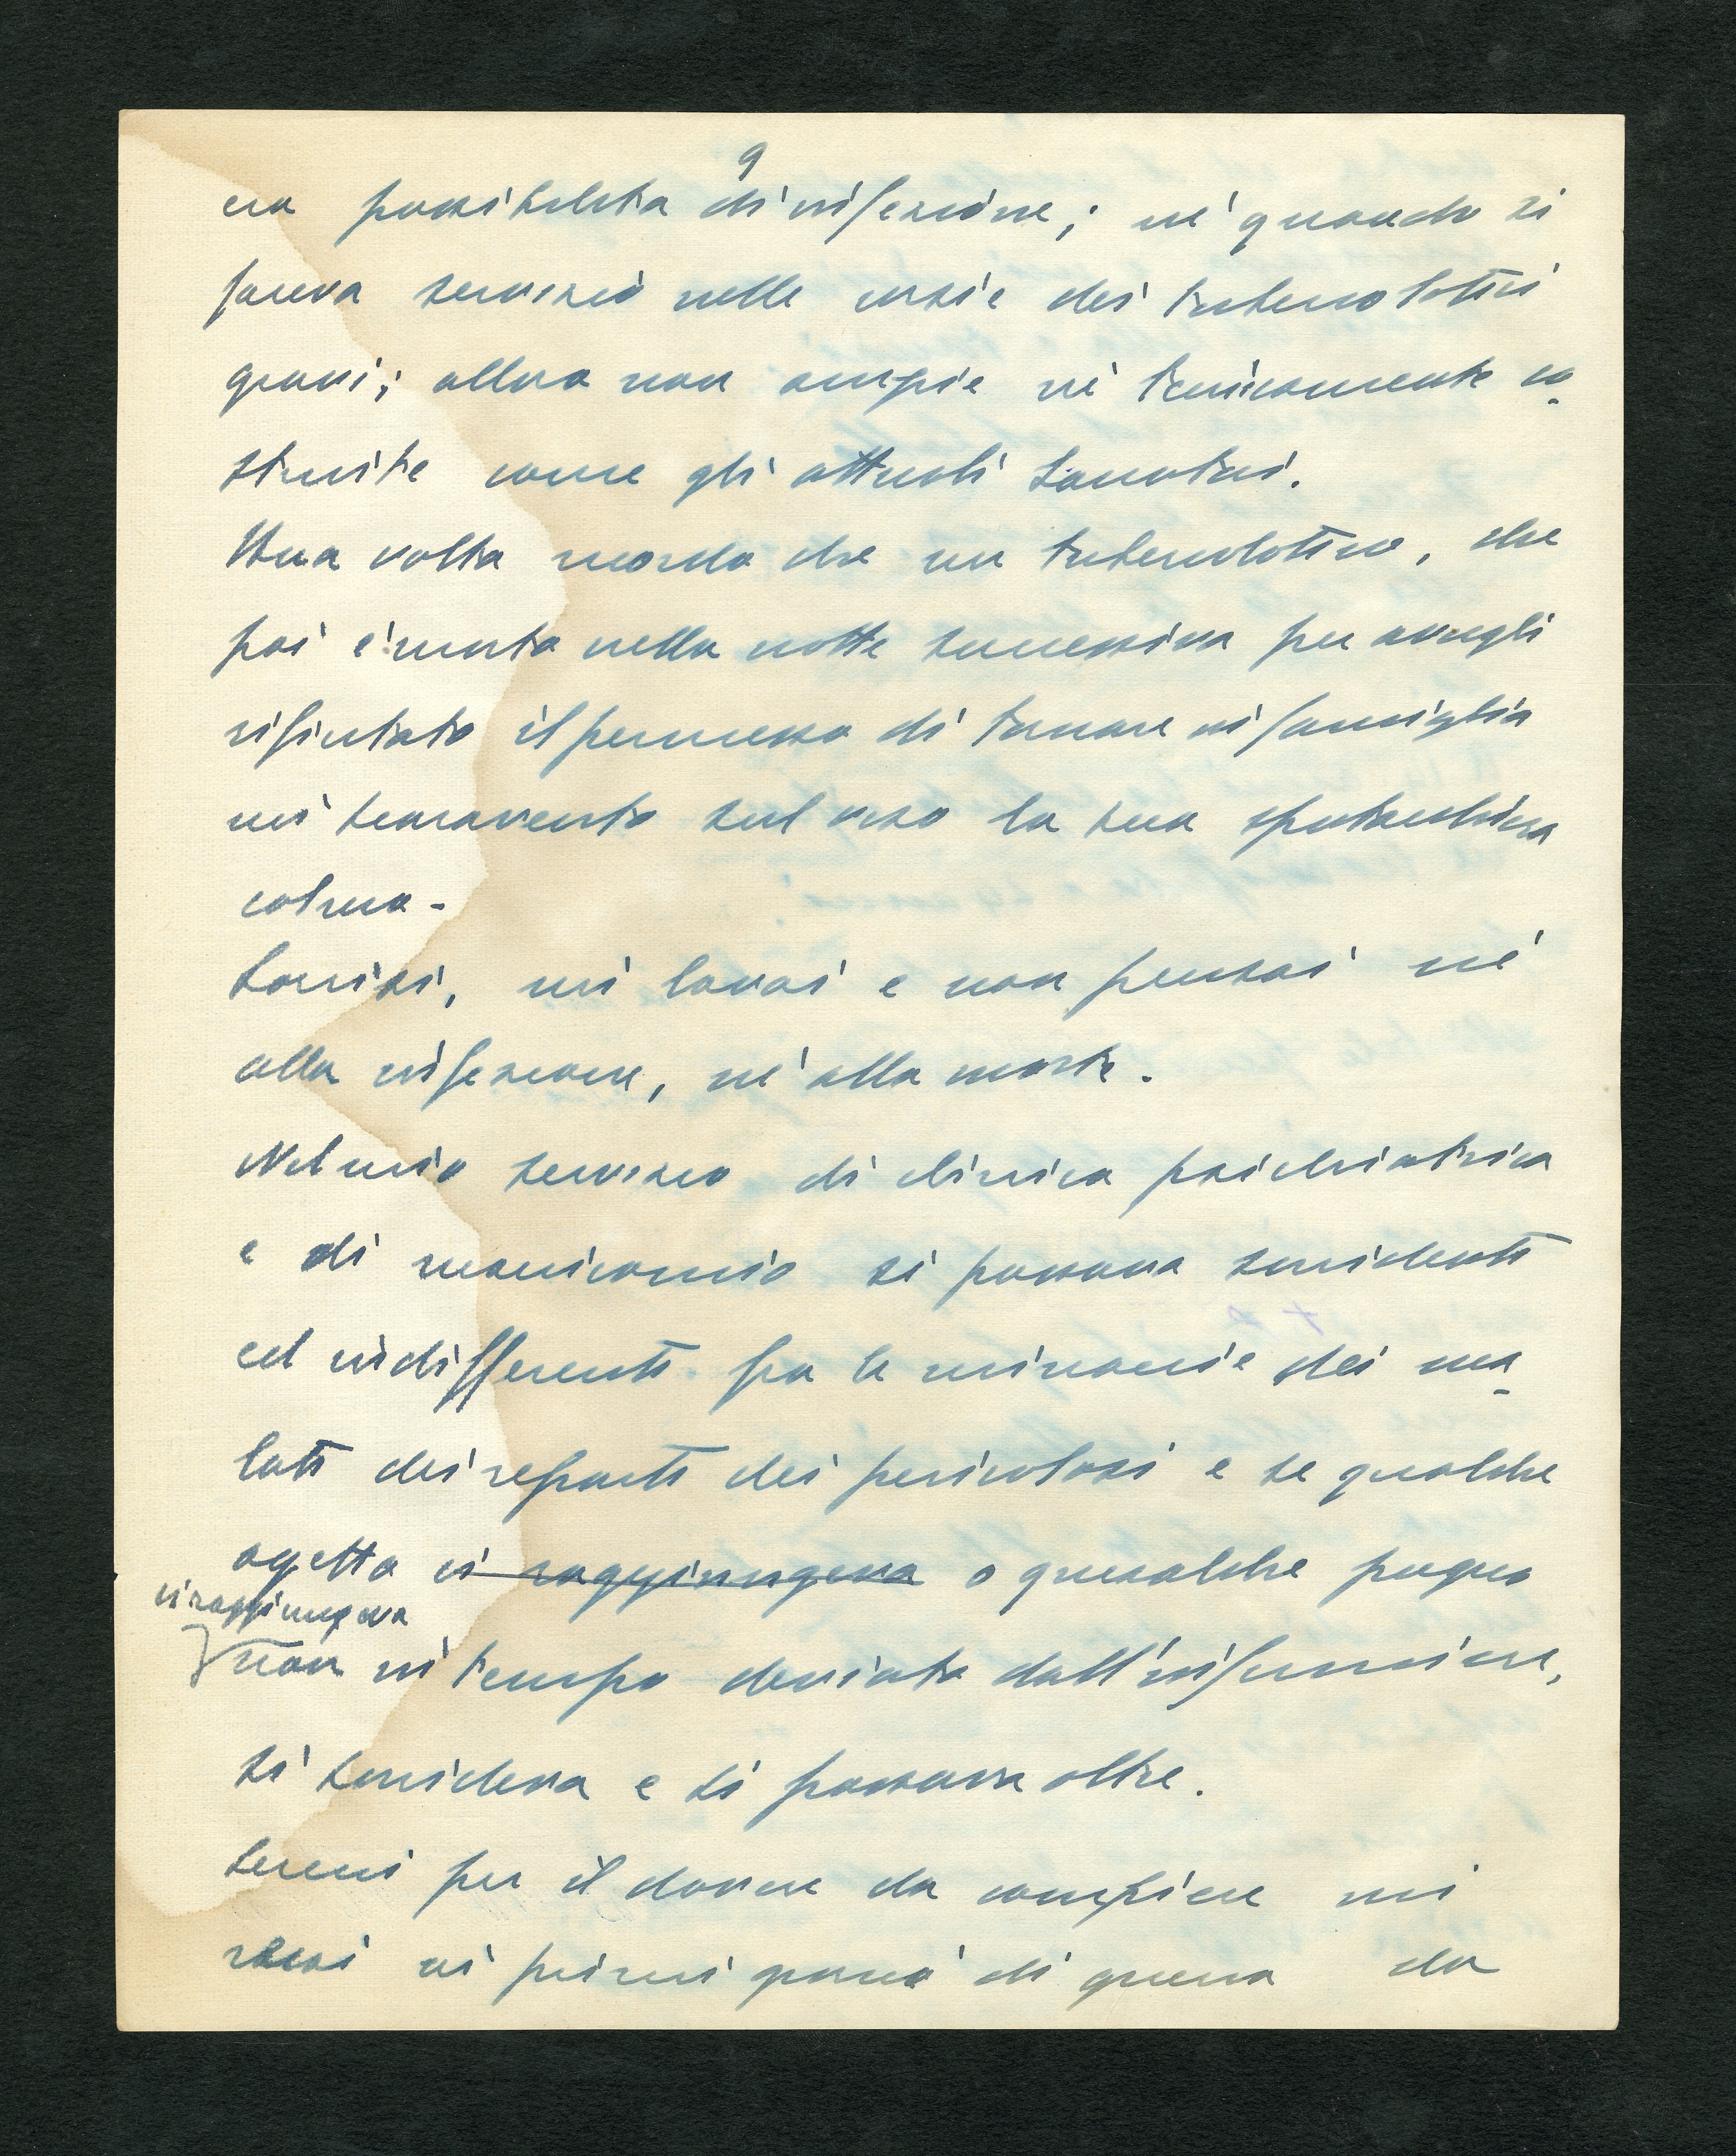 9
era possibilità di infezione; nè quando si
faceva servizio nelle corsie dei tubercolotici
gravi; allora non ampie nè tecnicamente co
struite come gli attuali sanatori.
Una volta ricordo che un tubercolotico, che
poi è morto nella notte successiva per avergli
rifiutato il permesso di tornare in famiglia
mi scaraventò sul viso la sua sputacchiera
colma -
Sorrisi, mi lavai e non pensai nè
alla infezione, nè alla morte.
Nel mio servizio di clinica psichiatrica
e di manicomio si passava sorridenti
ed indifferenti fra le minaccie dei ma
lati dei reparti dei pericolosi e se qualche
ogetto ci raggiungeva o qualche pugno
ci raggiungeva
non in tempo deviato dall'infermiere,
si sorrideva e si passava oltre.
Sereni per il dovere da compiere mi
recai ai primi giorni di guerra da